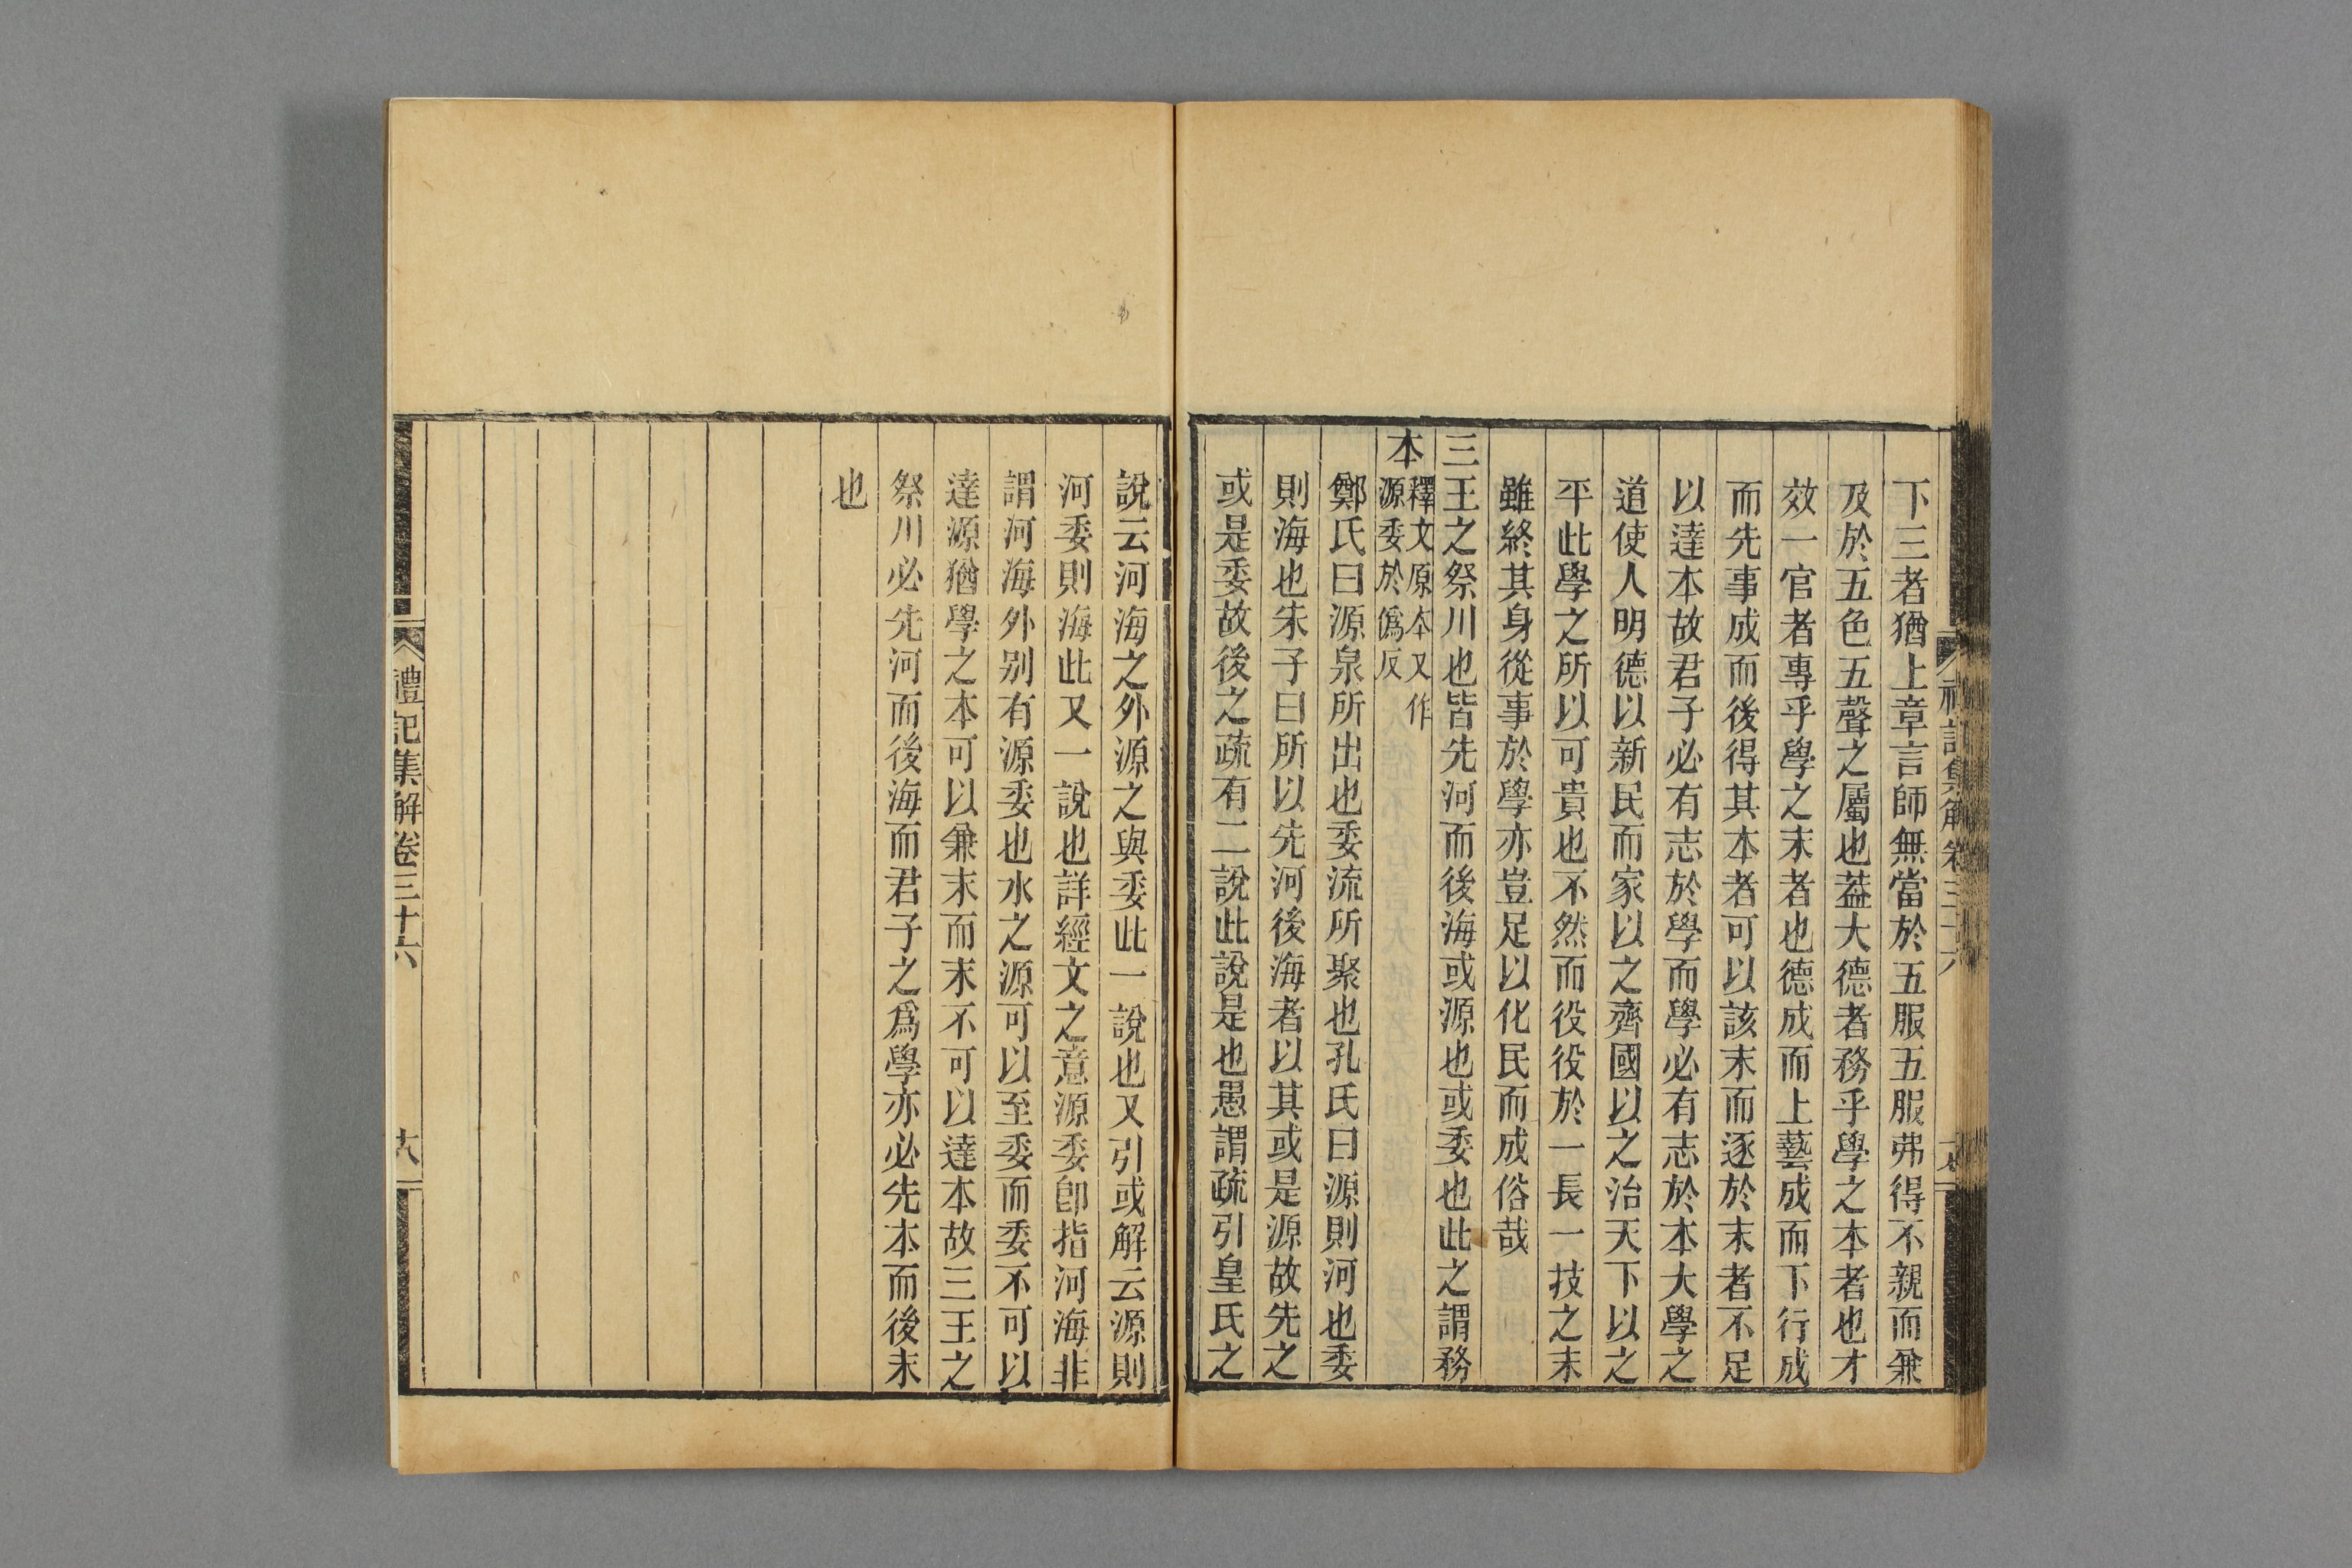 下三者猶上章言師無當於五服五服弗得不親而兼
及於五色五聲之屬也葢大德者務乎學之本者也才
效一官者專乎學之末者也德成而上藝成而下行成
而先事成而後得其本者可以該末而逐於末者不足
以達本故君子必有志於學而學必有志於本大學之
道使人明德以新民而家以之齊國以之治天下以之
平此學之所以可貴也不然而役役於一長一技之末
雖終其身從事於學亦豈足以化民而成俗哉
三王之祭川也皆先河而後海或源也或委也此之謂務
本釋文原本又作源委於僞反
鄭氏曰源泉所出也委流所聚也孔氏曰源則河也委
則海也朱子曰所以先河後海者以其或是源故先之
或是委故後之疏有二說此說是也愚謂疏引皇氏之
說云河海之外源之與委此一說也又引或解云源則
河委則海此又一說也詳經文之意源委卽指河海非
謂河海外别有源委也水之源可以至委而委不可以
達源猶學之本可以兼末而末不可以達本故三王之
祭川必先河而後海而君子之爲學亦必先本而後末
也
禮記集解卷三十六